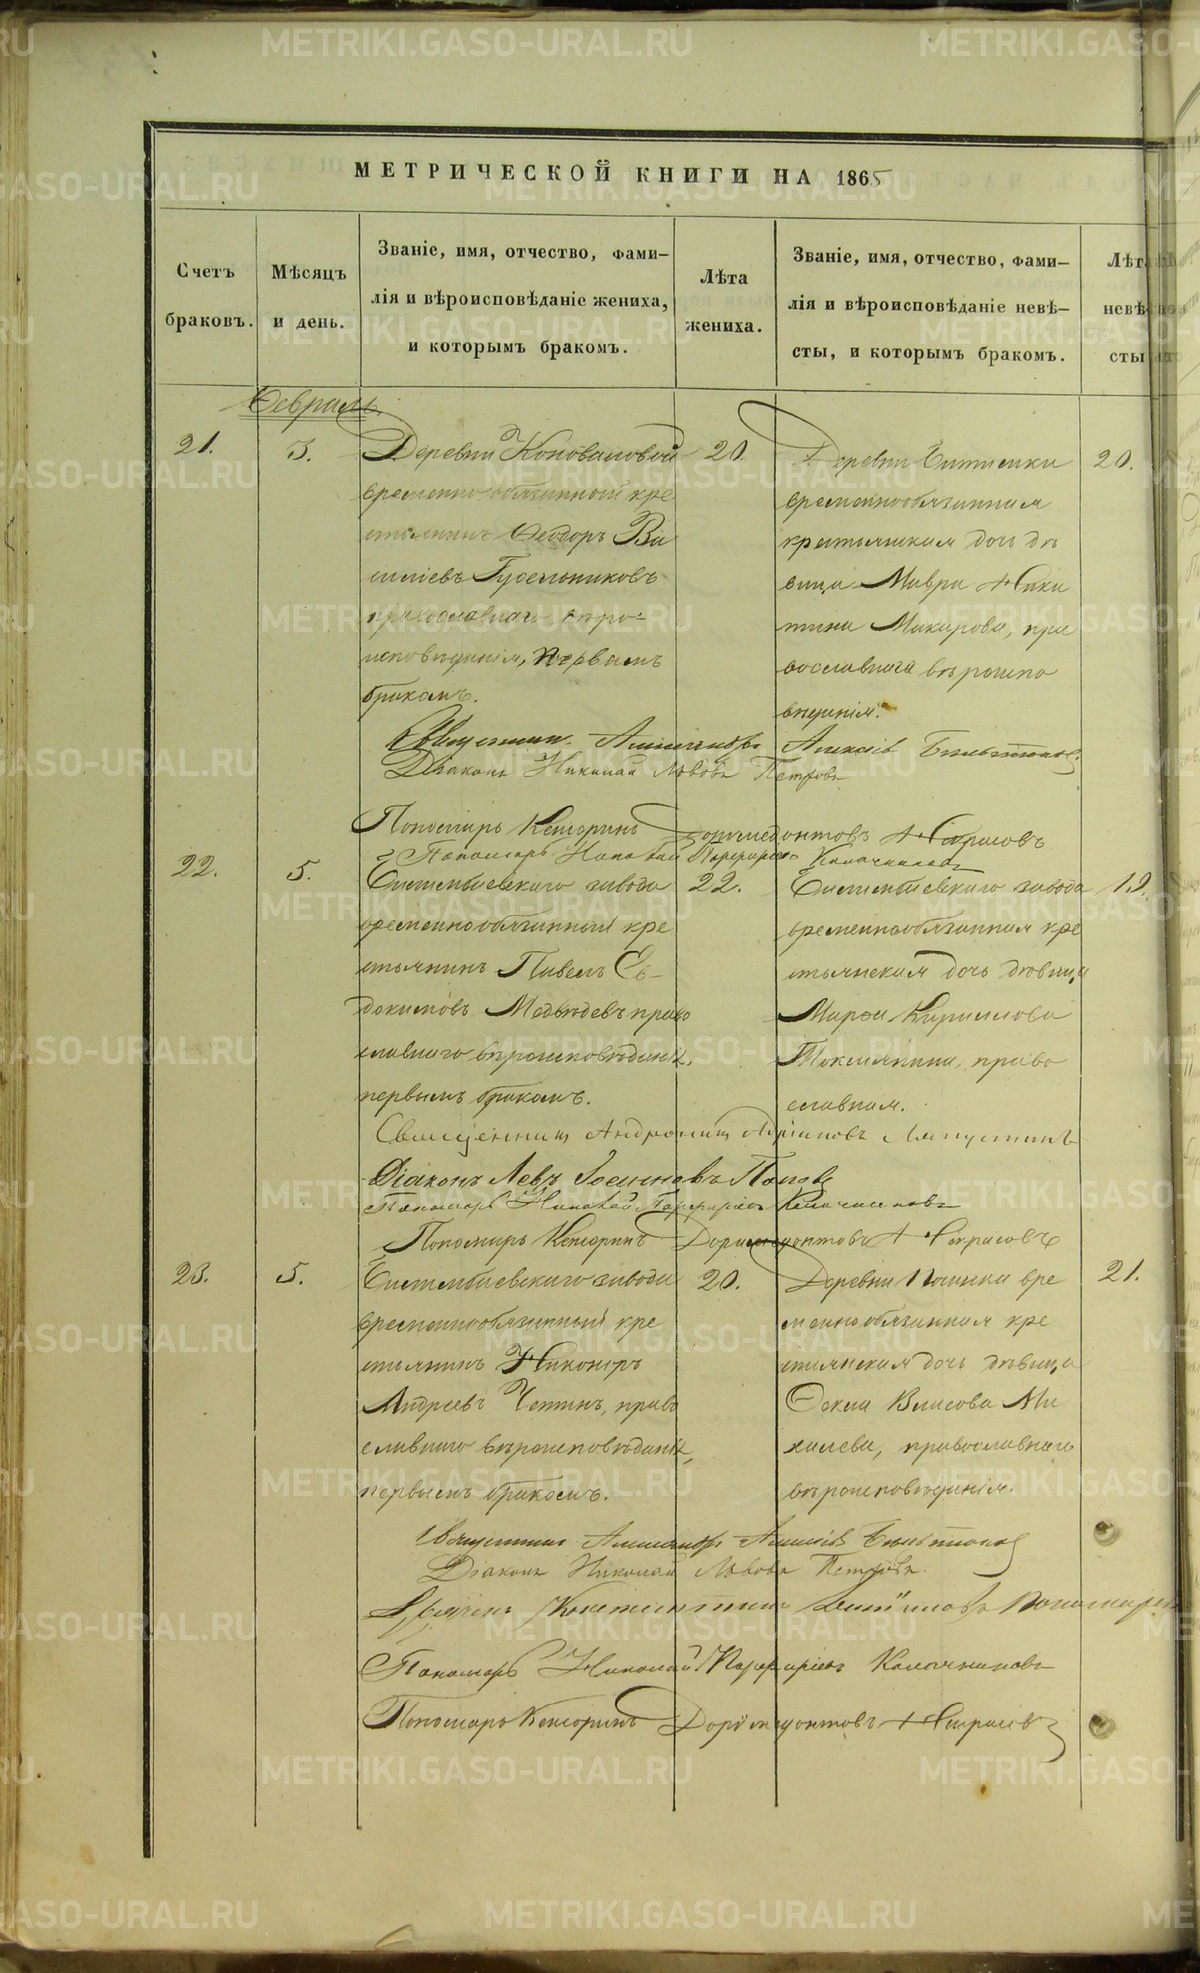 МЕТРИЧЕСКОЙ КНИГИ НА 1865
Счетъ браковъ.
Мѣсяцъ и день.
Званіе, имя, отчество, фами-
лія и вѣроисповѣданіе жениха,
и которымъ бракомъ.
Лѣта жениха.
Званіе, имя, отчество, фами-
лія и вѣроисповѣданіе невѣ-
сты, и которымъ бракомъ.
Лѣт
невѣ
сты
Февраль.
21.
5.
Деревни Коноваловой
временнообязанный кре
стьянинъ Ѳеодоръ Ва
силіевъ Гусельниковъ
православнаго вѣро-
исповѣданія, первымъ
бракомъ.
20
Деревни
временнообязанная
крестьянская дочь дѣ
вица Мавра Ники
тина Макарова, пра
вославнаго вѣроиспо
вѣданія.
20.
Священникъ Александръ Алексіевъ
Діаконъ Николай Львовъ Петровъ
Пономарь Доримедонтовъ Некрасовъ
Пономарь Николай Порфиріевъ
22.
5.
завода
временнообязанный кре
стьянинъ Павелъ Ев-
докимовъ Медвѣдевъ право
славнаго вѣроисповѣданія,
первымъ бракомъ.
22.
завода
временнообязанная кре
стьянская дочь дѣвица
Марѳа Кириллова
право
славная.
19.
Священникъ Андроникъ Адріановъ
Діаконъ Левъ Іоанновъ Поповъ
Пономарь Николай Порфиріевъ
Пономарь Доримедонтовъ Некрасовъ
23.
5.
завода
временнообязанный кре
стьянинъ Никаноръ
Андреевъ право
славнаго вѣроисповѣданія,
первымъ бракомъ.
20.
Деревни вре
меннообязанная кре
стьянская дочь дѣвица
Ѳекла Власова Ми
халева, православнаго
вѣроисповѣданія.
21.
Священникъ Александръ Алексіевъ
Діаконъ Николай Львовъ Петровъ
Пономарь Николай Порфиріевъ
Пономарь Доримедонтовъ Некрасовъ
METRIKI.GASO-URAL.RU